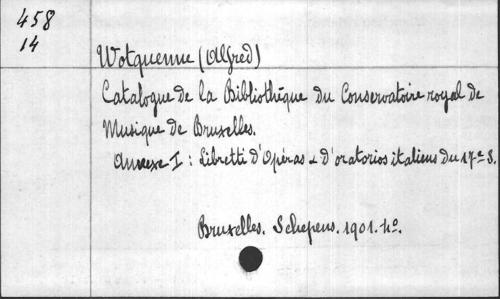 458
14
Wotquenne (Alfred)
Catalogue de la Bibliothèque du Conservatoire royal de
Musique de Bruxelles.
Annexe I : Libretti d'Opéras & d'oratorios italiens du 17e S.
Bruxelles. Schepens. 1901. 4o.